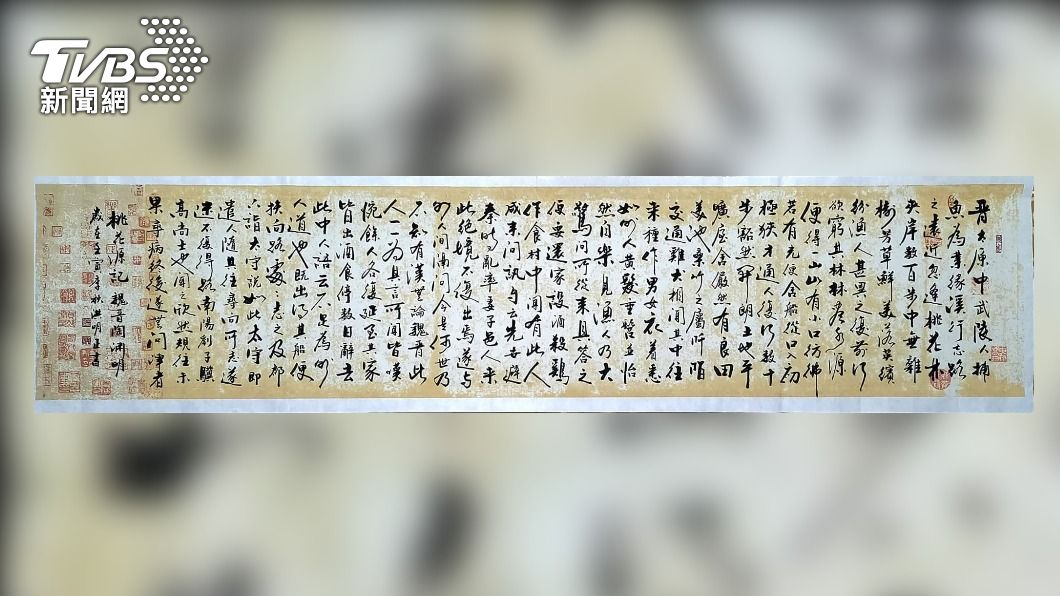 TVBS
新聞網
晉太原中武陵人捕
魚為業緣溪行忘路
之遠近忽逢桃花林
夾岸數百步中無雜
樹芳草鮮美落英繽
紛漁人甚異之復前行
欲窮其林林盡水源
便得一山山有小口彷彿
若有光便舍船從口入初
極狹才通人復行數十
步豁然開朗土地平
曠屋舍儼然有良田
美池桑竹之屬阡陌
交通雞犬相聞其中往
來種作男女衣着悉
如外人黃髮垂髫並怡
然自樂見漁人乃大
驚問所從來具答之
便要還家設酒殺雞
作食村中聞有此人
咸來問訊自云先世避
秦時亂率妻子邑人來
此絕境不復出焉遂與
外人間隔問今是何世乃
不知有漢無論魏晉此
人一一為具言所聞皆嘆
惋餘人各復延至其家
皆出酒食停數日辭去
此中人語云不足為外
人道也既出得其船便
扶向路處處志之及郡
下詣太守說如此太守即
遣人隨其往尋向所志遂
迷不復得路南陽劉子驥
高尚士也聞之欣然規往未
果尋病終後遂無問津者
桃花源記 魏晉陶淵明
歲在壬寅年秋洪明生書